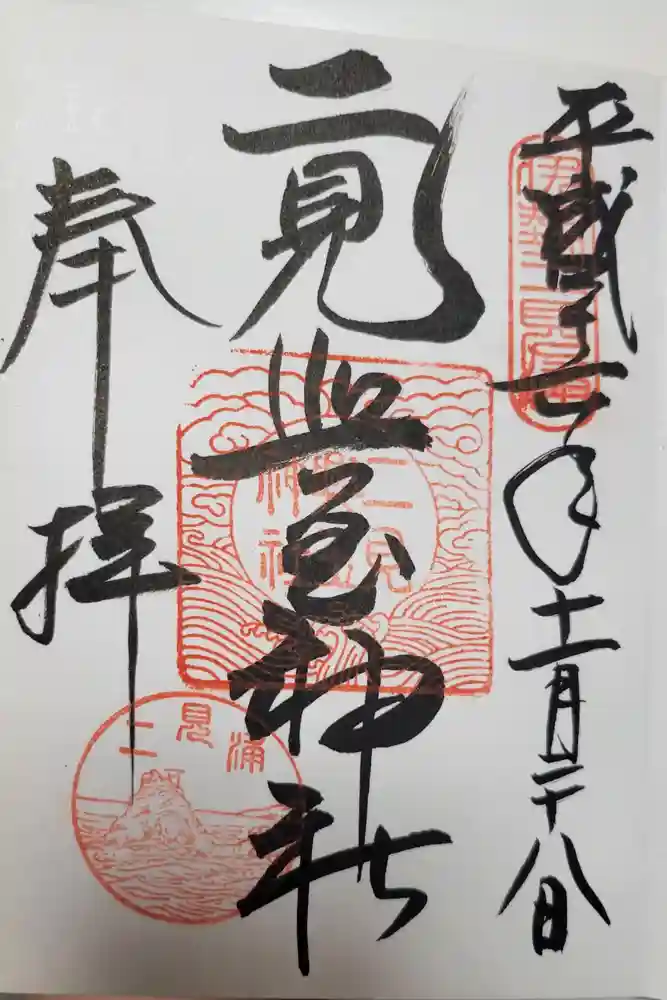 平成二十六年十一月二十八日
伊勢二見浦
二見興玉神社
二見
興玉
神社
奉拝
二見浦